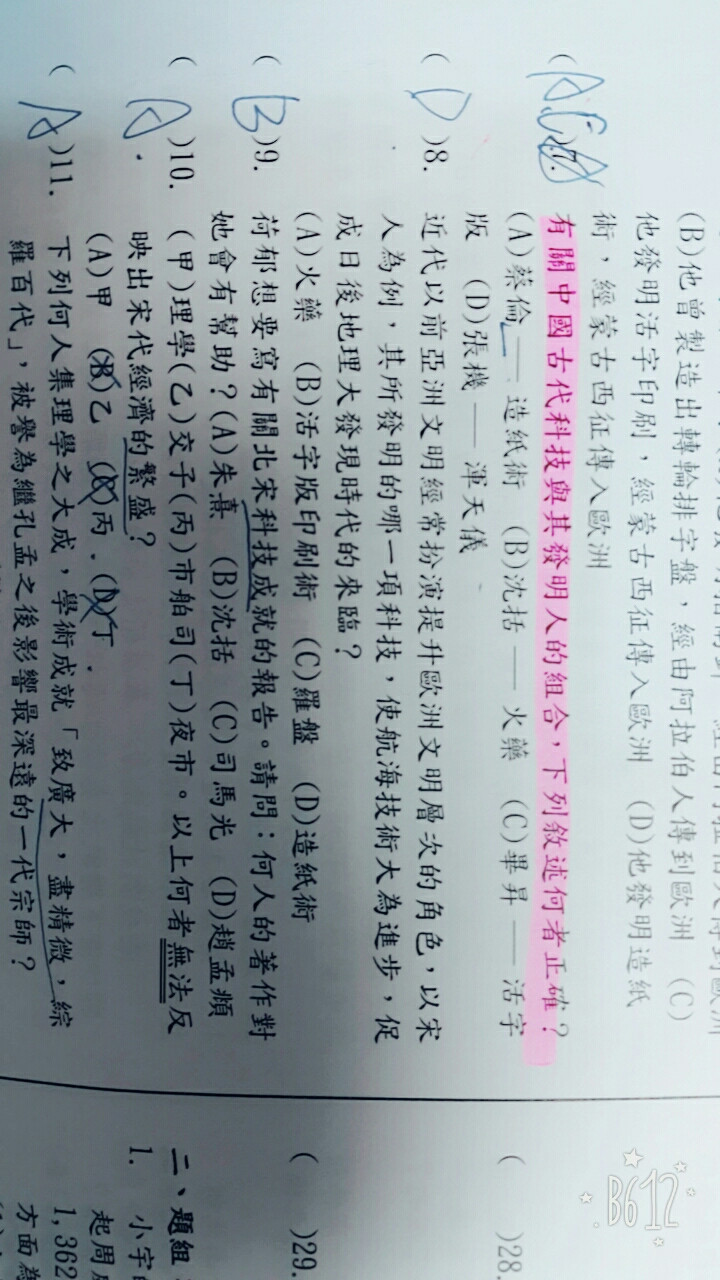 (B)他曾製造出轉輪排字盤，經由阿拉伯人傳到歐洲 (C)
他發明活字印刷，經蒙古西征傳入歐洲 (D)他發明造紙
術，經蒙古西征傳入歐洲
( A )7. 有關中國古代科技與其發明人的組合，下列敘述何者正確？
(A)蔡倫——造紙術 (B)沈括——火藥 (C)畢昇——活字
版 (D)張機——渾天儀
( D )8. 近代以前亞洲文明經常扮演提升歐洲文明層次的角色，以宋
人為例，其所發明的哪一項科技，使航海技術大為進步，促
成日後地理大發現時代的來臨？
(A)火藥 (B)活字版印刷術 (C)羅盤 (D)造紙術
( B )9. 荷郁想要寫有關北宋科技成就的報告。請問：何人的著作對
她會有幫助？(A)朱熹 (B)沈括 (C)司馬光 (D)趙孟頫
( A )10. (甲)理學(乙)交子(丙)市舶司(丁)夜市。以上何者無法反
映出宋代經濟的繁盛？
(A)甲 (B)乙 (C)丙 (D)丁
( A )11. 下列何人集理學之大成，學術成就「致廣大，盡精微，綜
羅百代」，被譽為繼孔孟之後影響最深遠的一代宗師？
( )28.
( )29.
二、題組
1. 小宇
起周
1,362
方面為
B612